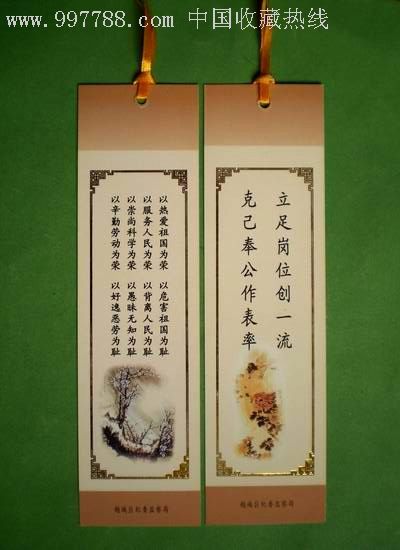 www.997788.com 中国收藏热线
以热爱祖国为荣 以危害祖国为耻
以服务人民为荣 以背离人民为耻
以崇尚科学为荣 以愚昧无知为耻
以辛勤劳动为荣 以好逸恶劳为耻
越城区纪委监察局
立足岗位创一流
克己奉公作表率
越城区纪委监察局